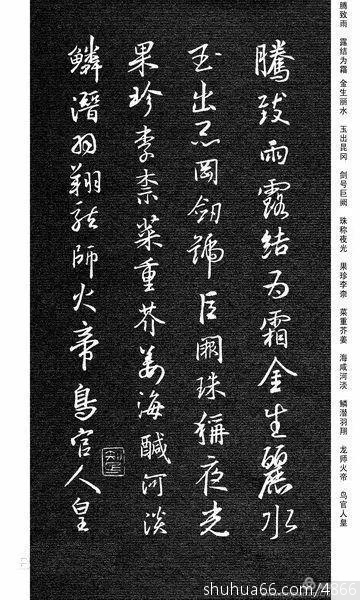 腾致雨 露结为霜 金生丽水 玉出昆冈 剑号巨阙 珠称夜光 果珍李奈 菜重芥姜 海咸河淡 鳞潜羽翔 龙师火帝 鸟官人皇
騰致雨露結為霜金生麗水
玉出崑岡劍號巨闕珠稱夜光
果珍李柰菜重芥薑海鹹河淡
鱗潛羽翔龍師火帝鳥官人皇
shuhua66.com/4866